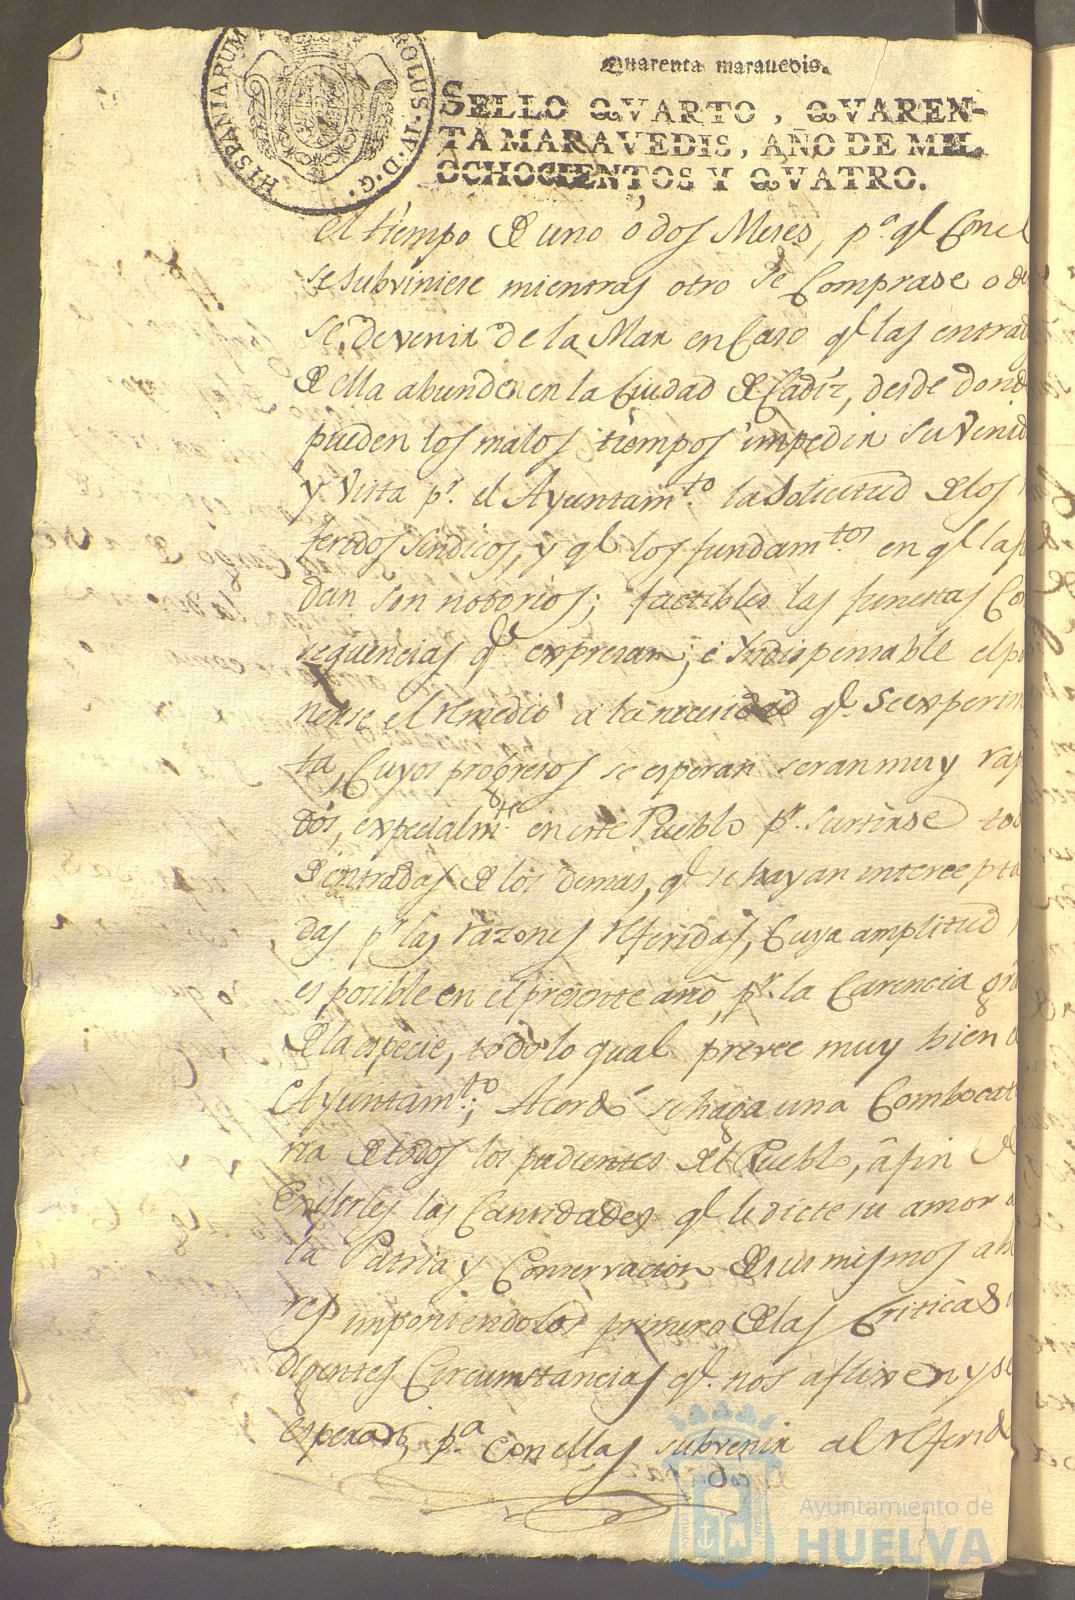 HISPANIARUM
ROLUS·IV·D·G·
Quarenta marauedis.
SELLO QVARTO, QVAREN-
TA MARAVEDIS, AÑO DE MIL
OCHOCIENTOS Y QVATRO.
el tiempo de uno ó dos Meses, pª. qe Con el
se subviniese mientras otro se Comprase o de
se, de venir de la Mar en Caso qe las entrad
de ella abunden en la Ciudad de Cádiz, desde dond
pueden los malos tiempos impedir su venid
y Vista pr. el Ayuntamto. la Solicitud de los
feridos Sindicos, y qe los fundamtos en qe la
dan son notorios; factibles las funestas Con
sequencias qe expresan; é Yndispensable el po
nerse el remedio a la necesidad qe. Se experim
ta, Cuyos progresos se esperan seran muy rap
dos, expecialmte. en este Pueblo pr. surtirse
de entradas de los demas, qe se hayan intercepta
das pr las razones referidas, Cuya amplitud
es posible en el presente año, pr. la Carencia
de la especie, todo lo qual prevee muy bien
Ayuntamto.; Acordó se haga una Combocat
ria de todos los pudientes del Pueblo, á fin de
Exijirles las Cantidades qe le dicte su amor
la Patria y Conservacion de sus mismos
res imponiendolos primero de las Criticas
urgentes Circumstancias qe. nos aflixen y se
esperan, pª. con ellas subvenir al referid
Ayuntamiento de
HUELVA